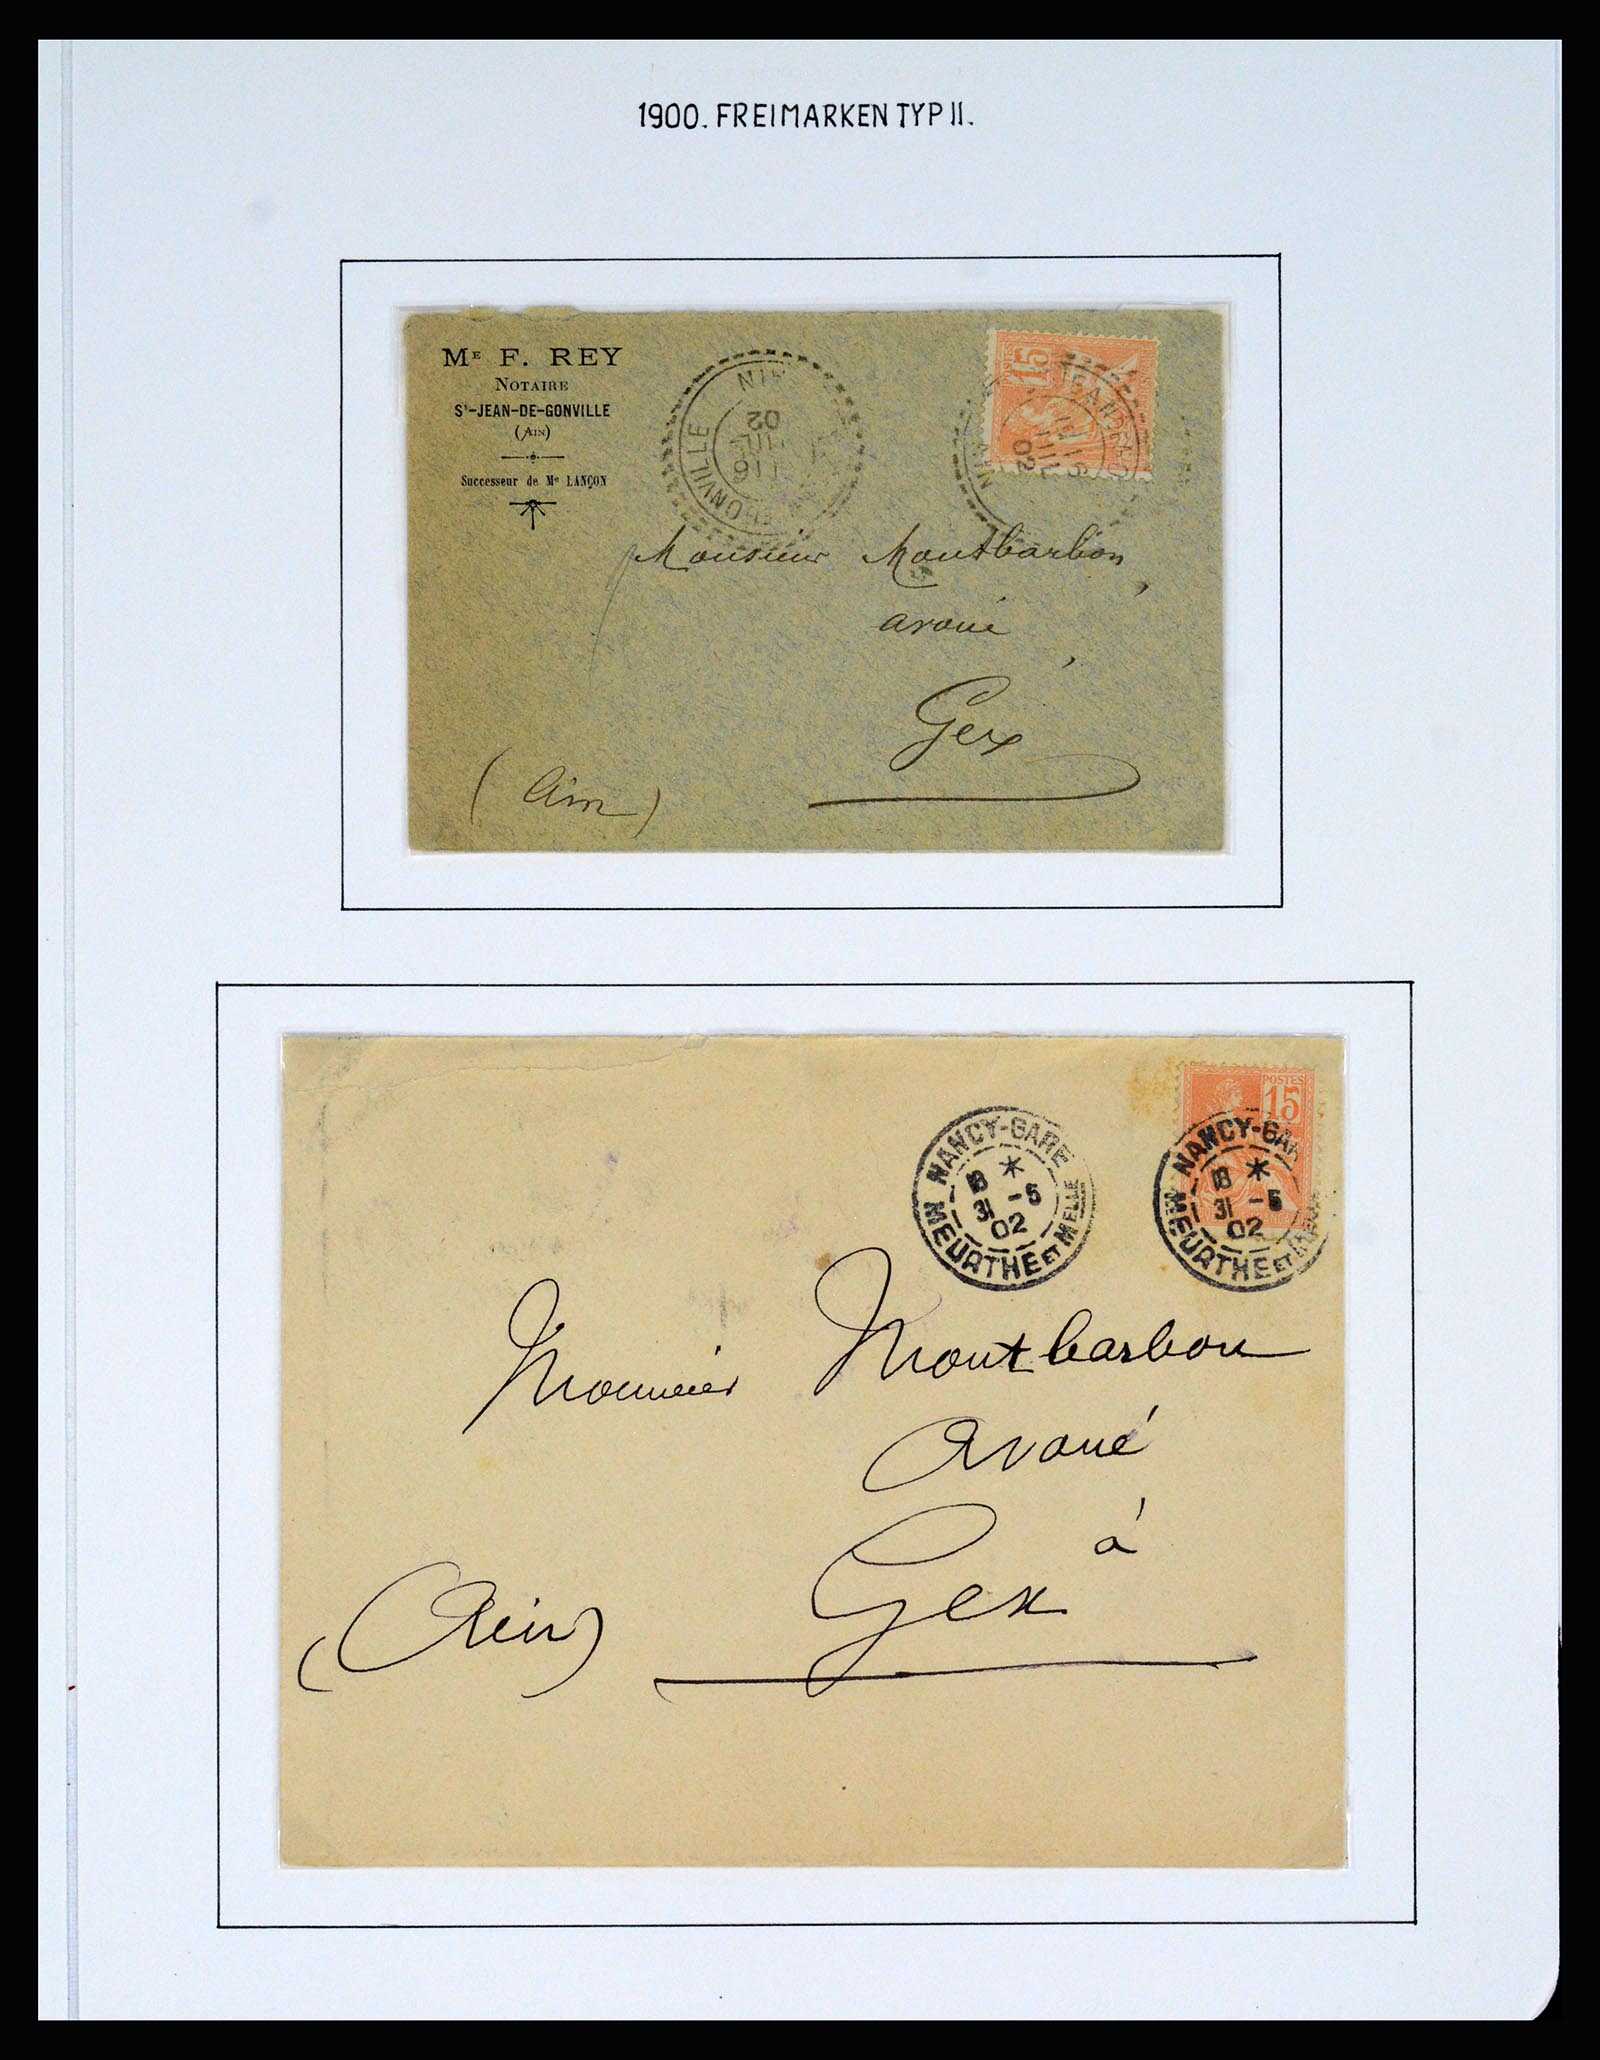 1900. FREIMARKEN TYP II.
Mᴱ F. REY
NOTAIRE
Sᵗ-JEAN-DE-GONVILLE
(AIN)
Successeur de Mᵉ LANÇON
GONVILLE
AIN
02
15
AIN
02
Monsieur Montbarbon,
avoué,
Gex
(Ain)
POSTES
15
NANCY-GARE
18 *
31 -5
02
MEURTHE ET MELLE
NANCY-GAR
18 *
31 -5
02
MEURTHE ET
Monsieur Montbarbon
Avoué
à
Gex
(Ain)